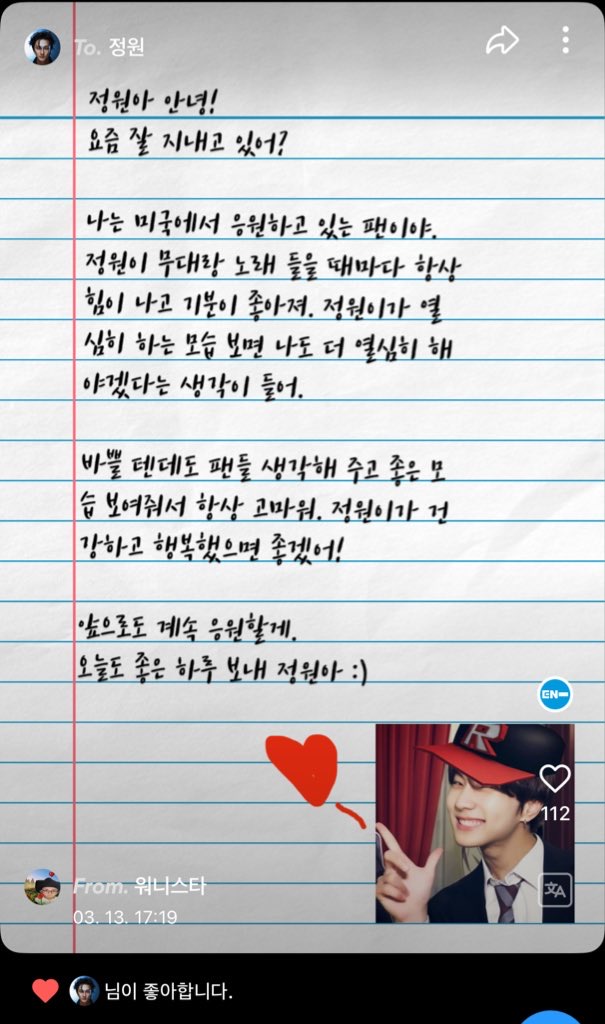 To. 정원
정원아 안녕!
요즘 잘 지내고 있어?
나는 미국에서 응원하고 있는 팬이야.
정원이 무대랑 노래 들을 때마다 항상
힘이 나고 기분이 좋아져. 정원이가 열
심히 하는 모습 보면 나도 더 열심히 해
야겠다는 생각이 들어.
바쁠 텐데도 팬들 생각해 주고 좋은 모
습 보여줘서 항상 고마워. 정원이가 건
강하고 행복했으면 좋겠어!
앞으로도 계속 응원할게.
오늘도 좋은 하루 보내 정원아 :)
EN-
R
112
From. 워니스타
03. 13. 17:19
文A
님이 좋아합니다.